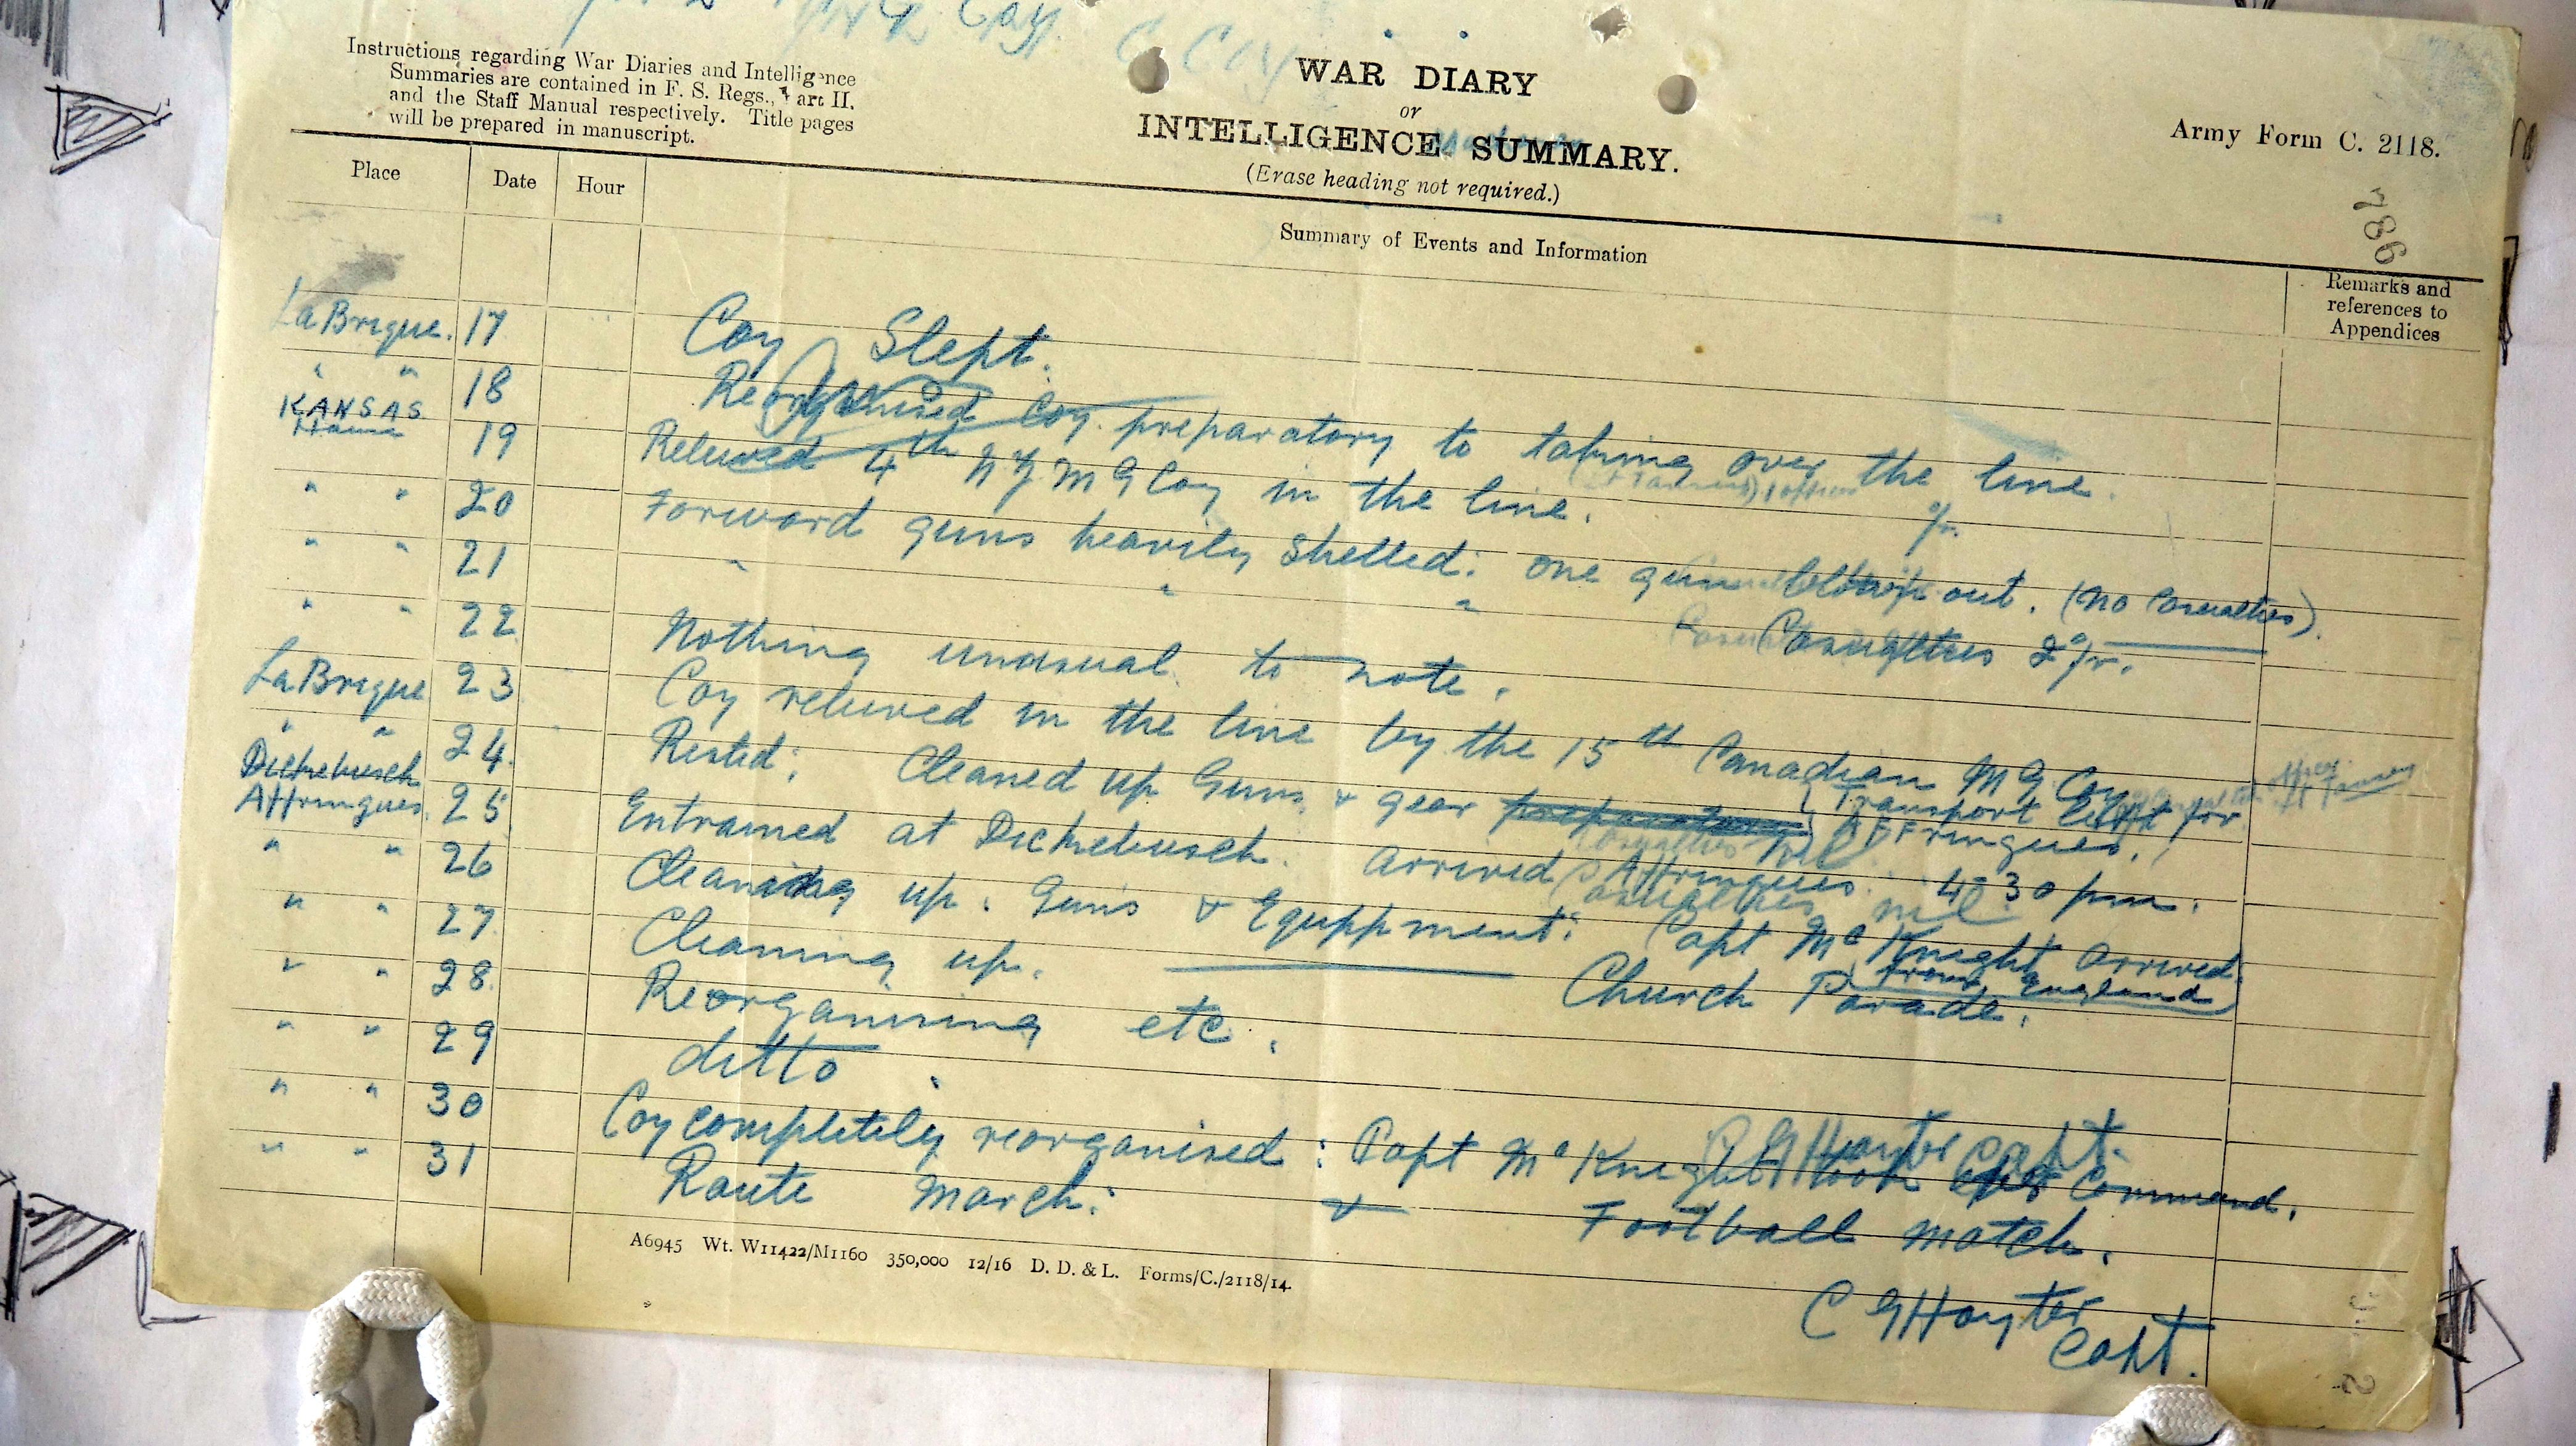 Instructions regarding War Diaries and Intelligence
Summaries are contained in F. S. Regs., Part II.
and the Staff Manual respectively. Title pages
will be prepared in manuscript.
WAR DIARY
or
INTELLIGENCE SUMMARY.
(Erase heading not required.)
Army Form C. 2118.
786
Place Date Hour Summary of Events and Information Remarks and
references to
Appendices
La Brique. 17 Coy Slept.
" " 18 Reorganised Coy. preparatory to taking over the line.
KANSAS
House 19 Relieved 4th N Z M G Coy in the line.
" " 20 Forward guns heavily shelled: one gun blown out. (No Casualties).
" " 21 " " " Casualties 2 o/r.
" " 22 Nothing unusual to note.
La Brique 23 Coy relieved in the line by the 15th Canadian M G Coy
" " 24. Rested: Cleaned up Guns & gear preparatory Transport left for
Affringues.
Dickebusch
Affringues. 25 Entrained at Dickebusch. Arrived Affringues. 4-30 pm.
" " 26 Cleaning up. Guns & Equppment: Capt McKnight arrived
from England
" " 27 Cleaning up. Church Parade.
" " 28. Reorganising etc.
" " 29 ditto
" " 30 Coy completely reorganised: Capt McKnight took over Command.
" " 31 Route March: & Football match.
C G Hayter
Capt.
A6945 Wt. W11422/M1160 350,000 12/16 D. D. & L. Forms/C./2118/14